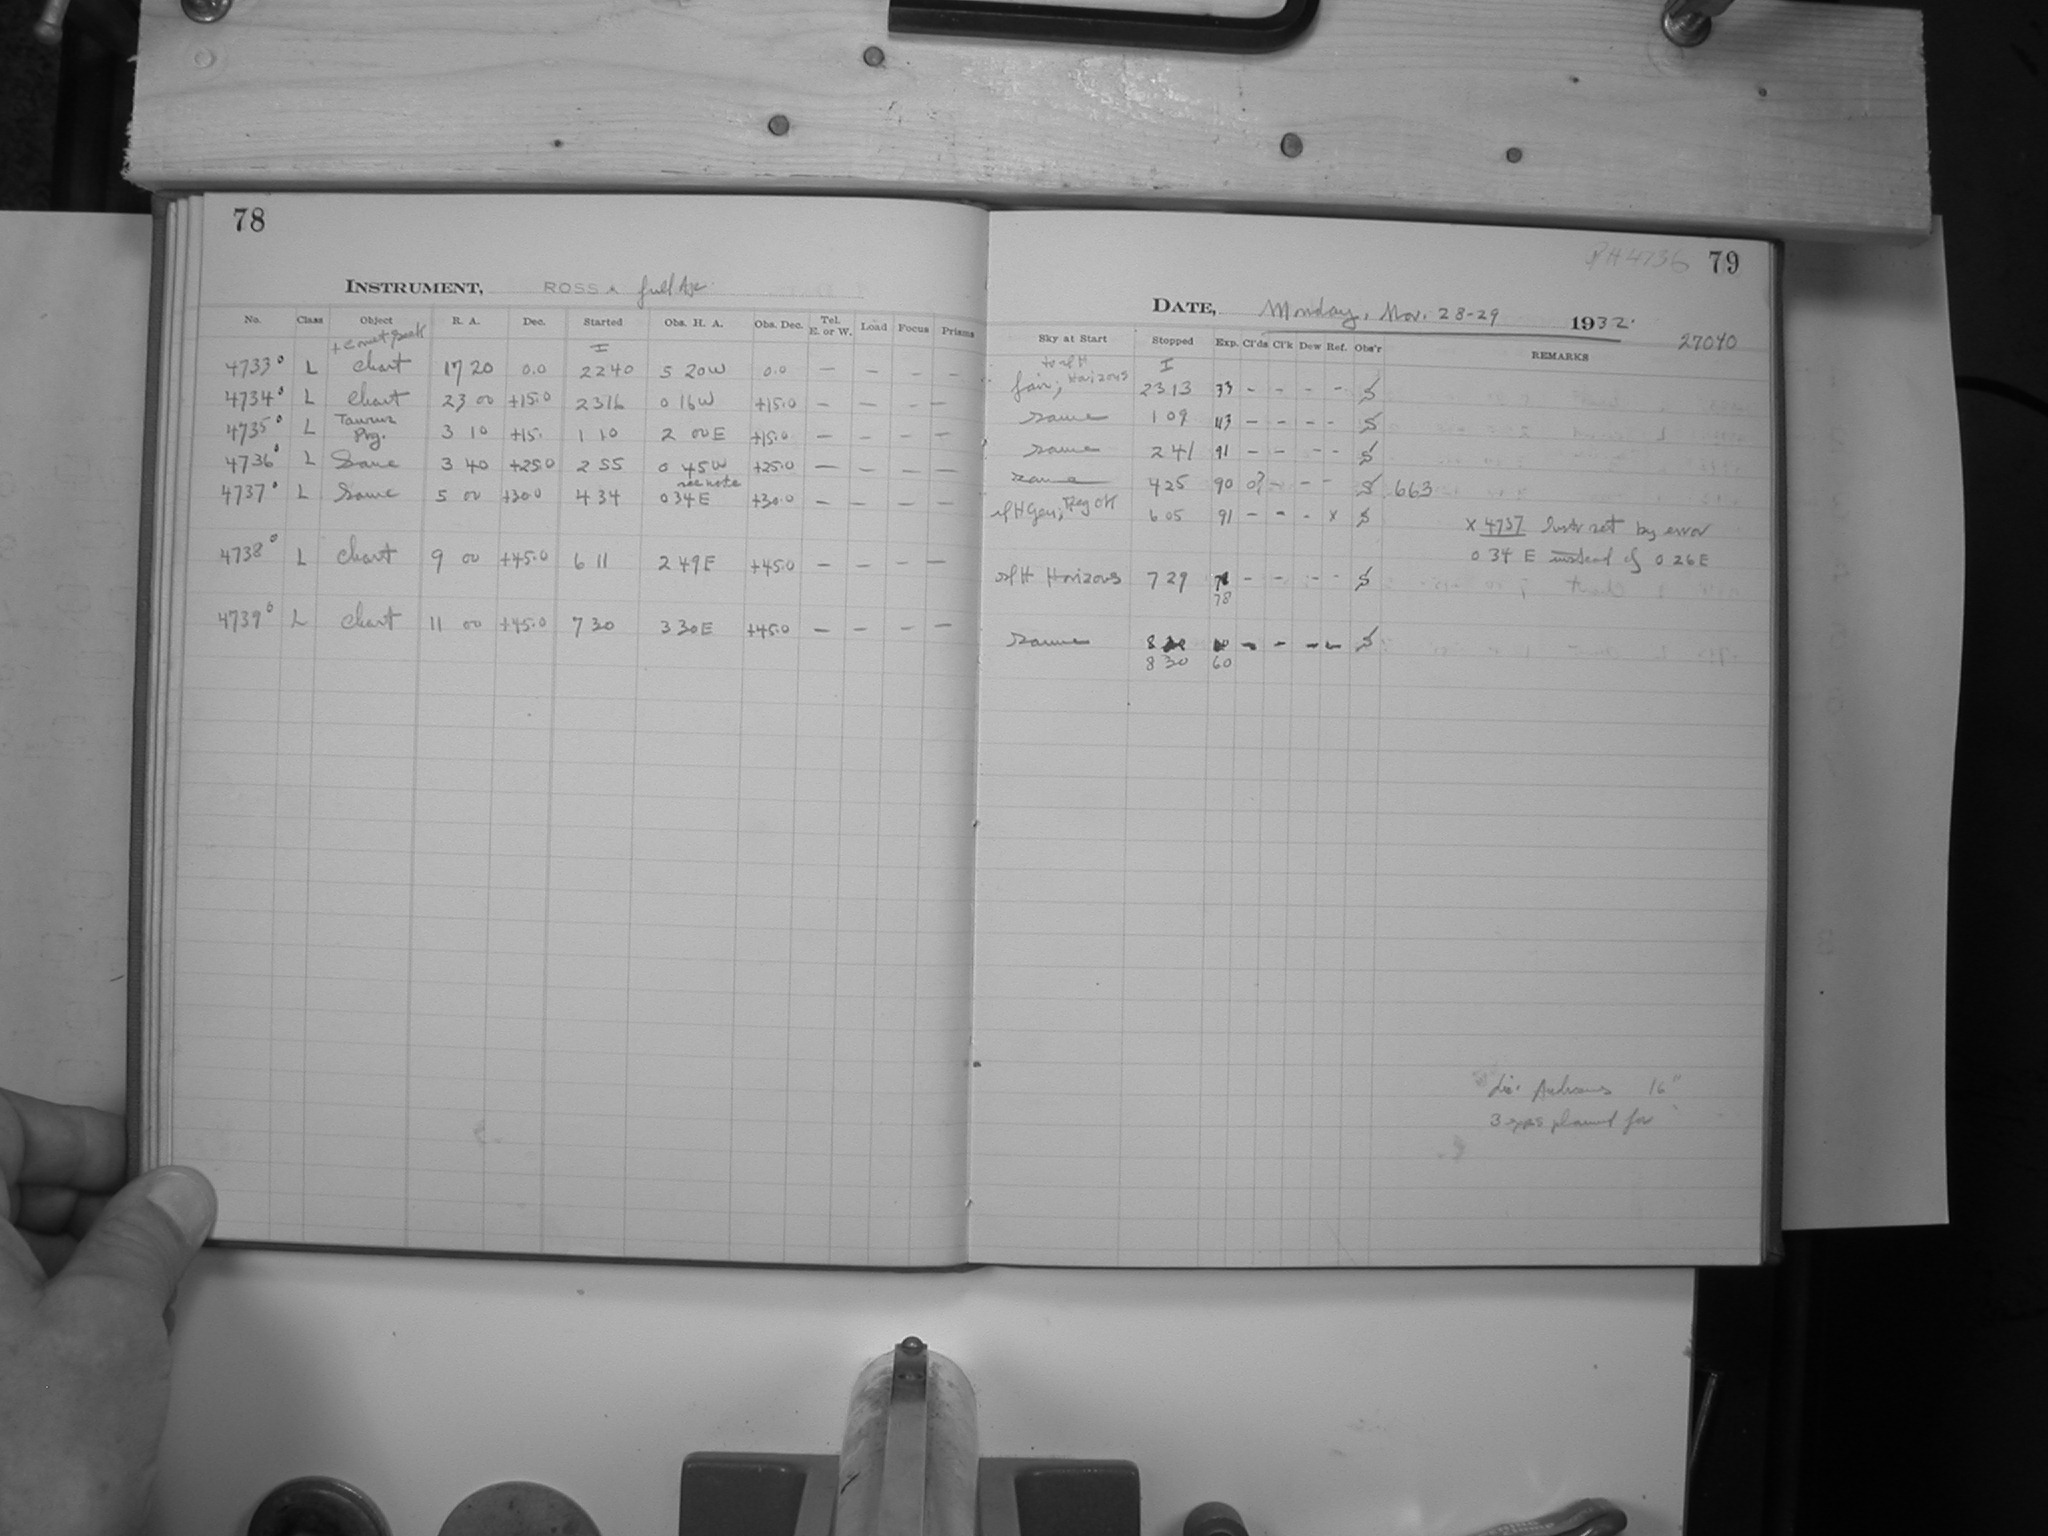 78
INSTRUMENT, ROSS A full Ape.
No. Class Object R. A. Dec. Started Obs. H. A. Obs. Dec. Tel. E. or W. Load Focus Prisms
+ Comet
4733 L Chart 17 20 0.0 22 40 5 20 W 0.0 — — — —
4734 L Chart 23 00 +15.0 23 16 0 16 W +15.0 — — — —
4735 L Taurus Prg. 3 10 +15. 1 10 2 00 E +15.0 — — — —
4736 L Same 3 40 +25.0 2 55 0 45 W +25.0 — — — —
see note
4737 L Same 5 00 +30.0 4 34 0 34 E +30.0 — — — —
4738 L Chart 9 00 +45.0 6 11 2 49 E +45.0 — — — —
4739 L Chart 11 00 +45.0 7 30 3 30 E +45.0 — — — —
4736 79
DATE, Monday, Nov. 28-29 1932.
27040
Sky at Start Stopped Exp. Cl'ds Cl'k Dew Ref. Obs'r REMARKS
fair; Horizons 23 13 33 - - - -
same 1 09 113 - - - -
same 2 41 91 - - - -
same 4 25 90 0? - - - 663
6 05 91 - - - x
x 4737 Instr set by error
0 34 E instead of 0 26 E
Horizons 7 29 78 - - - -
same 8 30 60 - - - -
16"
3 exps planned for